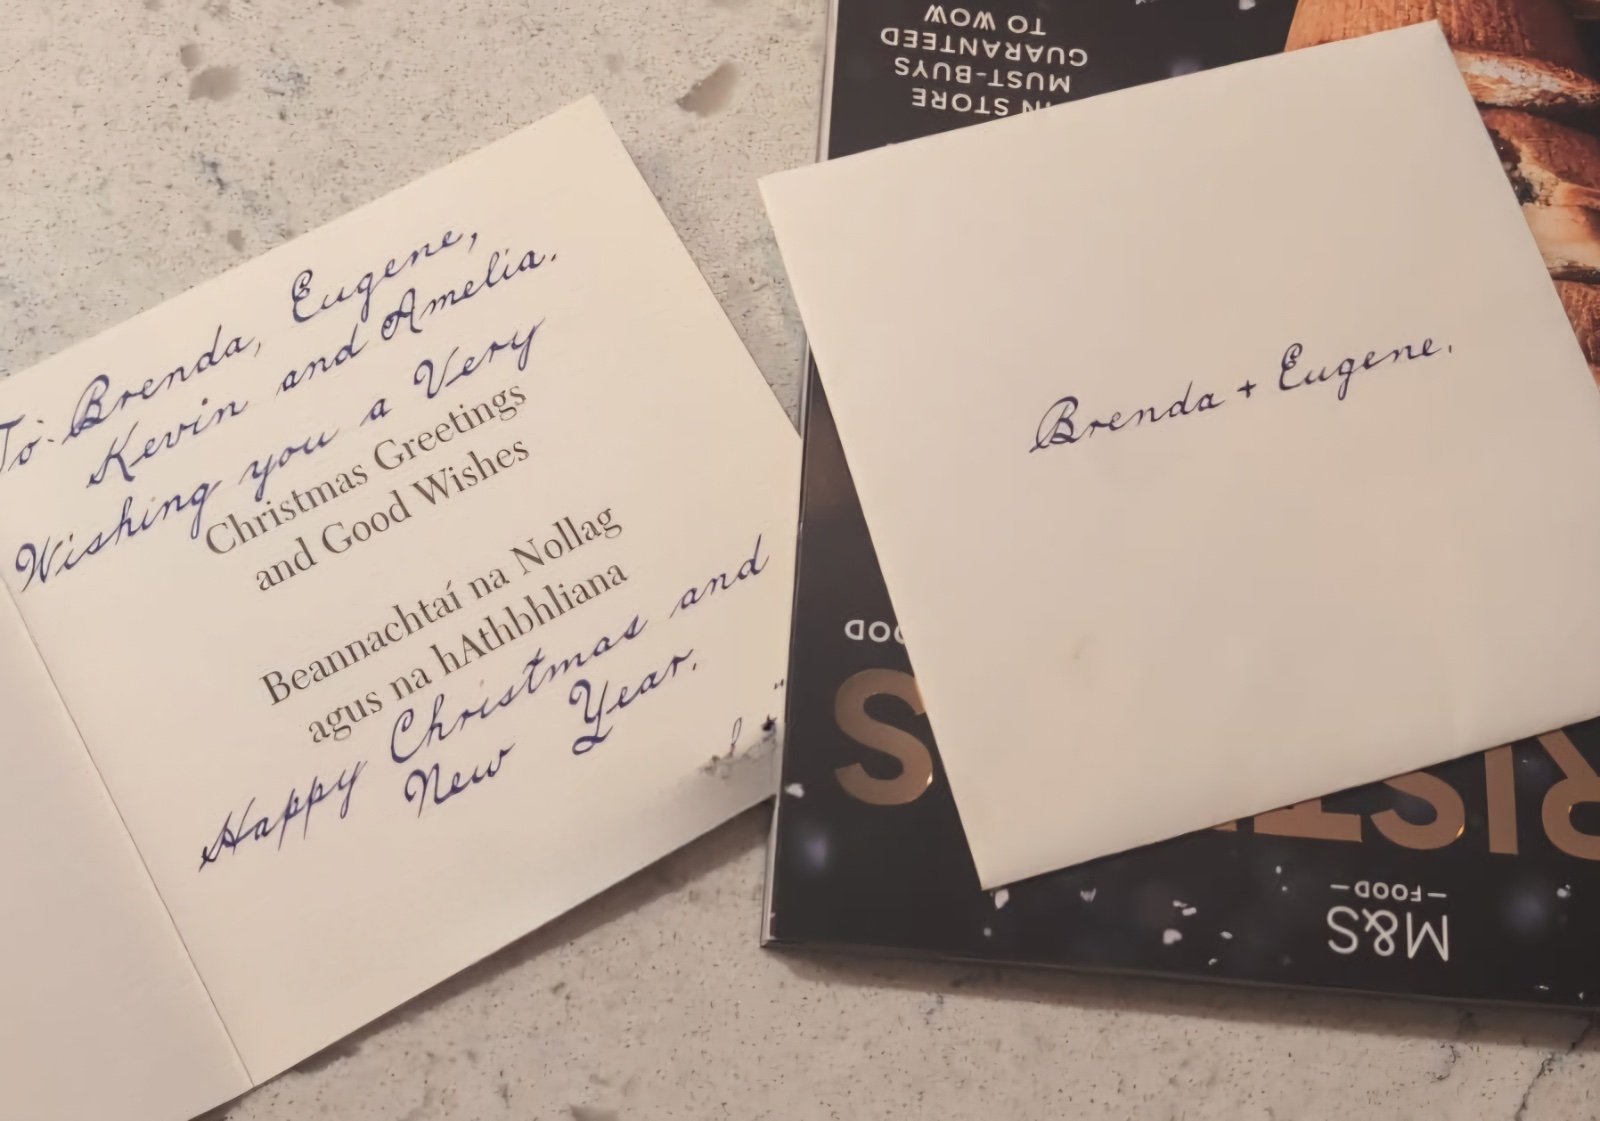 To: Brenda, Eugene,
Kevin and Amelia.
Wishing you a Very
Christmas Greetings
and Good Wishes
Beannachtaí na Nollag
agus na hAthbhliana
Happy Christmas and
New Year.
Brenda + Eugene.
IN STORE
MUST-BUYS
GUARANTEED
TO WOW
M&S
FOOD